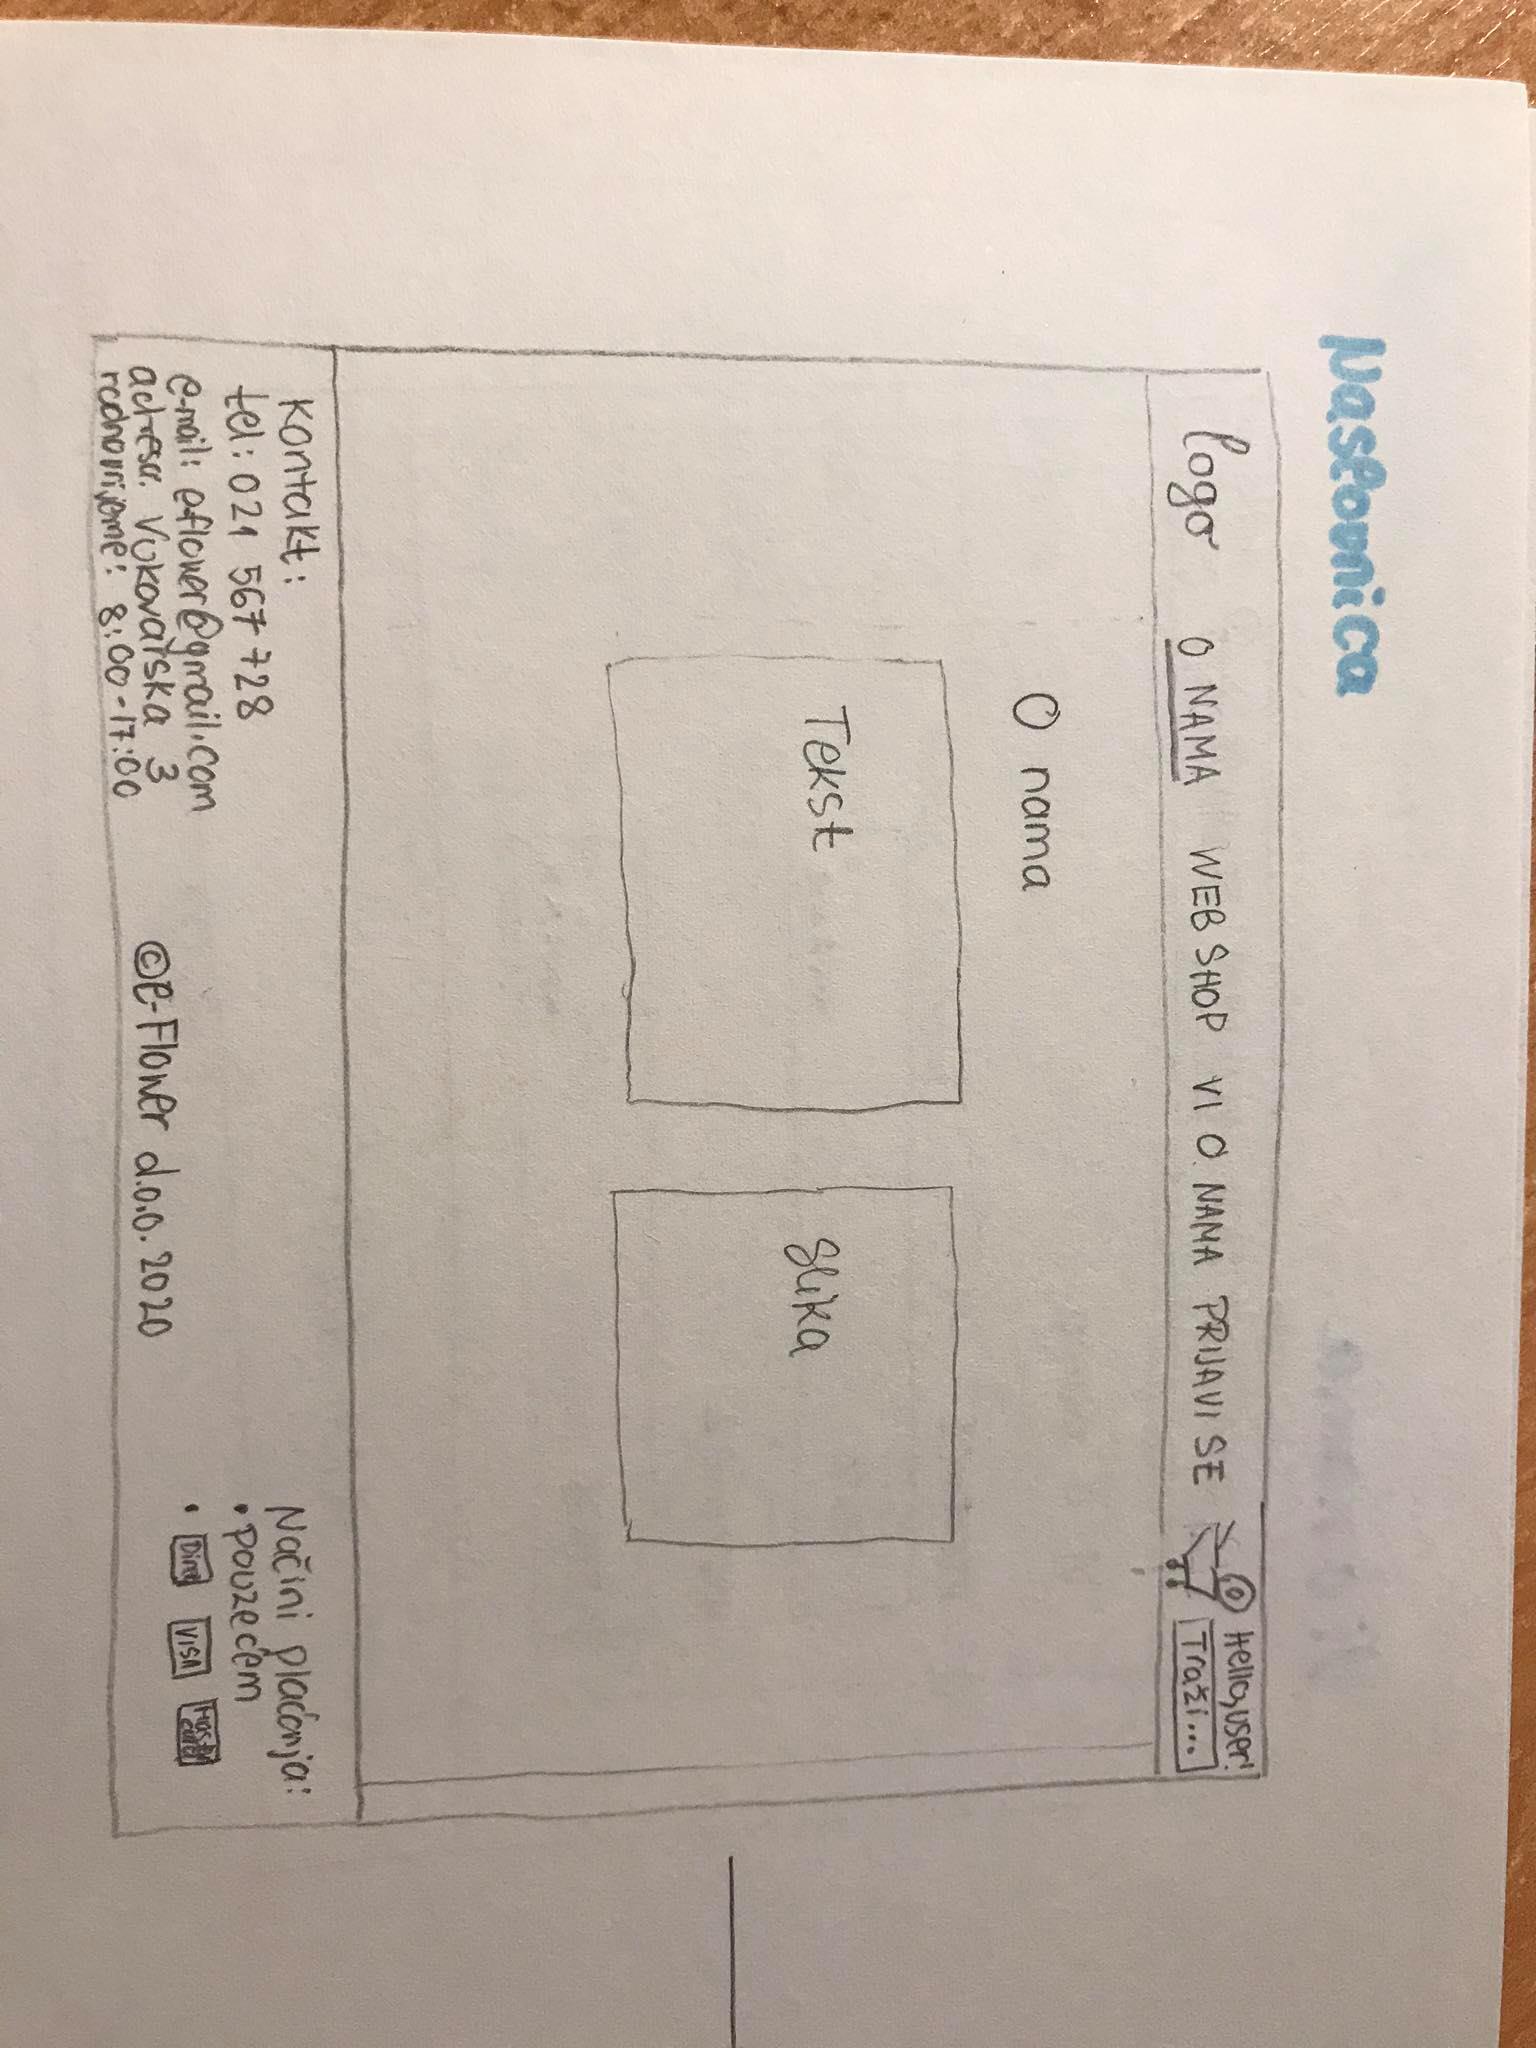 Naslovnica
logo O NAMA WEB SHOP VI O NAMA PRIJAVI SE 0 Hello, user!
Traži...
O nama
Tekst
Slika
Kontakt:
tel: 021 567 728
e-mail: eflower@gmail.com
adresa: Vukovarska 3
radnovrijeme: 8:00-17:00
©e-Flower d.o.o. 2020
Načini plaćanja:
• pouzećem
• VISA Master card